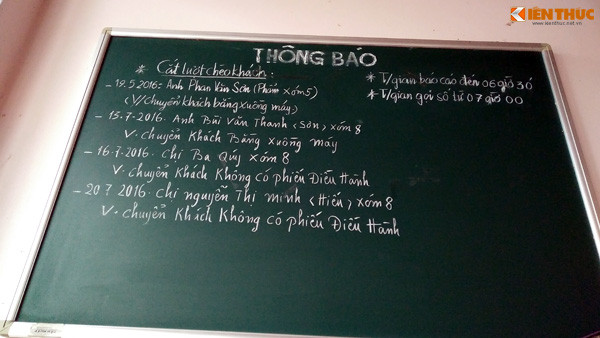 KIẾN THỨC
www.kienthuc.net.vn
THÔNG BÁO
* Cắt lượt chèo khách:
- 19.5.2016: Anh Phan Văn Sơn (Phẩm xóm 5)
(V/chuyển khách bằng xuồng máy)
- 15-7-2016. Anh Bùi Văn Thanh (Sơn) xóm 8
V. chuyển Khách Bằng xuồng máy
- 16.7.2016. Chị Ba Qúy xóm 8
V. chuyển Khách Không có phiếu Điều Hành
- 20 7 2016. Chị nguyễn Thị minh (Hiếu) xóm 8
V. chuyển Khách Không có phiếu Điều Hành
* T/gian báo cáo đến 06 giờ 30
* T/gian gọi số từ 07 giờ 00